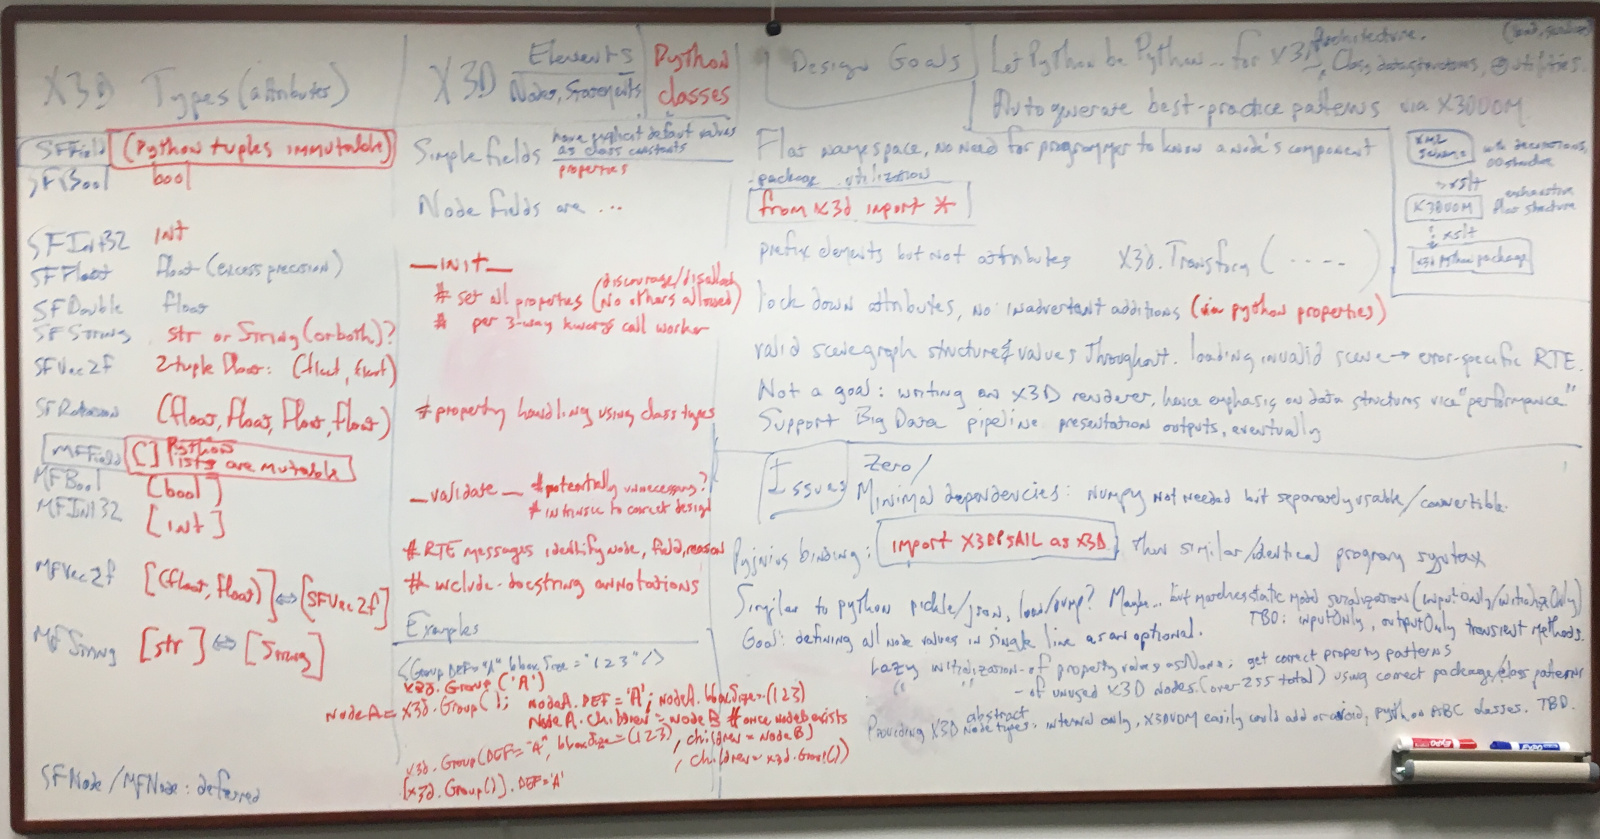 X3D Types (attributes)
SFField (Python tuples immutable)
SFBool bool
SFInt32 int
SFFloat float (excess precision)
SFDouble float
SFString str or String (or both)?
SFVec2f 2-tuple float: (float, float)
SFRotation (float, float, float, float)
MFField [] Python lists are mutable
MFBool [bool]
MFInt32 [int]
MFVec2f [(float, float)] ⇔ [SFVec2f]
MFString [str] ⇔ [String]
SFNode/MFNode: deferred
X3D Elements
Nodes, Statements
Python classes
Simple fields have explicit default values
as class constants
properties
Node fields are ...
__init__
# set all properties (discourage/disallow
(No others allowed)
# per 3-way kwargs call worker
# property handling using class types
__validate__ # potentially unnecessary?
# intrinsic to correct design
# RTE messages identify node, field, reason
# include docstring annotations
Examples
<Group DEF="A" bboxSize="1 2 3"/>
x3d.Group('A')
nodeA = x3d.Group(); nodeA.DEF='A'; nodeA.bboxSize=(1 2 3)
nodeA.children = nodeB # once nodeB exists
x3d.Group(DEF="A", bboxSize=(1 2 3), children=nodeB)
, children=x3d.Group())
[x3d.Group()].DEF='A'
Design Goals
Let Python be Python... for X3D Architecture.
Class datastructures, @utilities.
Autogenerate best-practice patterns via X3DUOM
Flat namespace, no need for programmer to know a node's component
package utilization
from x3d import *
prefix elements but not attributes X3d.Transform(.....)
lock down attributes, no inadvertent additions (via python properties)
valid scenegraph structure & values throughout. loading invalid scene → error-specific RTE.
Not a goal: writing an X3D renderer, hence emphasis on data structures vice "performance"
Support Big Data pipeline presentation outputs, eventually
XML Schema
↓ xslt
X3DUOM exhaustive flat structure
↓ xslt
x3d python package
Issues
Zero/
Minimal dependencies: numpy not needed but separately usable/convertible.
Pyjnius binding: import X3DPSAIL as X3D Thus similar/identical program syntax
Similar to python pickle/json, load/dump? Maybe.. but matches static model serialization (inputOnly/
TBD: inputOnly, outputOnly transient methods.
Goal: defining all node values in single line as an optional.
Lazy initialization - of property values as None; get correct property patterns
" " - of unused X3D Nodes (over 255 total) using correct package/class patterns
Providing X3D abstract Node types: internal only, X3DUOM easily could add or avoid, python ABC classes. TBD.
EXPO
EXPO